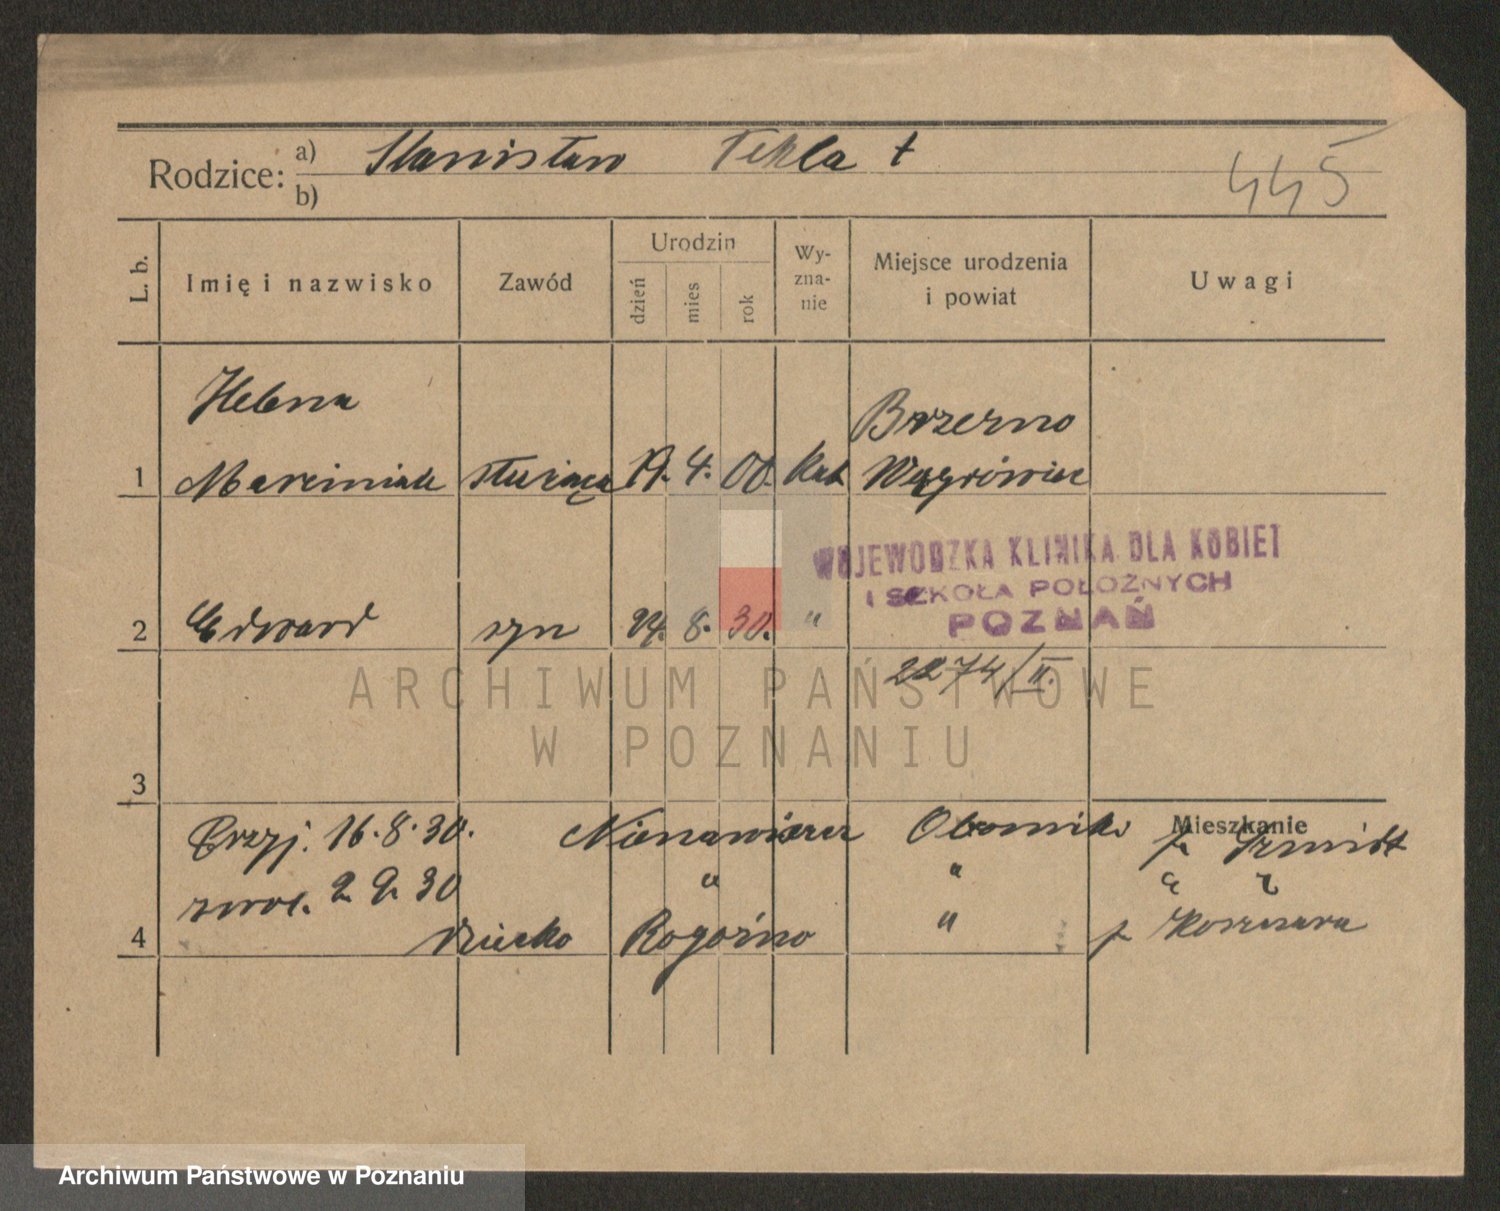 Rodzice: a) Stanisław Tekla †
b)
445
L. b.
Imię i nazwisko
Zawód
Urodzin
dzień
mies
rok
Wy-
zna-
nie
Miejsce urodzenia
i powiat
Uwagi
Helena
Brzezno
1 Marciniak służąca 19. 4. 00. kat Wągrówiec
WOJEWODZKA KLINIKA DLA KOBIET
I SZKOŁA POŁOŻNYCH
POZNAŃ
2 Edward syn 24. 8. 30. "
2274/II.
ARCHIWUM PAŃSTWOWE
W POZNANIU
3
Mieszkanie
Przyj. 16.8.30. Oborniki
zwol. 2 9. 30 " "
4 dziecko Rogoźno " p
Archiwum Państwowe w Poznaniu